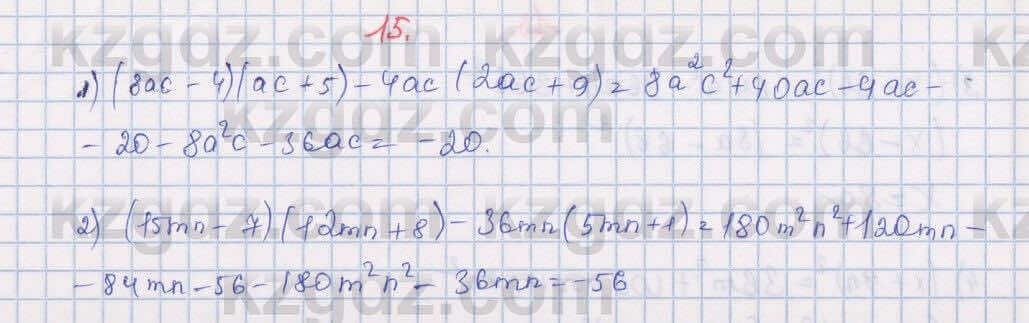 15.
1) (8ac - 4)(ac + 5) - 4ac (2ac + 9) = 8a²c² + 40ac - 4ac -
- 20 - 8a²c - 36ac = -20.
2) (15mn - 7)(12mn + 8) - 36mn(5mn + 1) = 180m²n² + 120mn -
- 84mn - 56 - 180m²n² - 36mn = -56
kzgdz.com